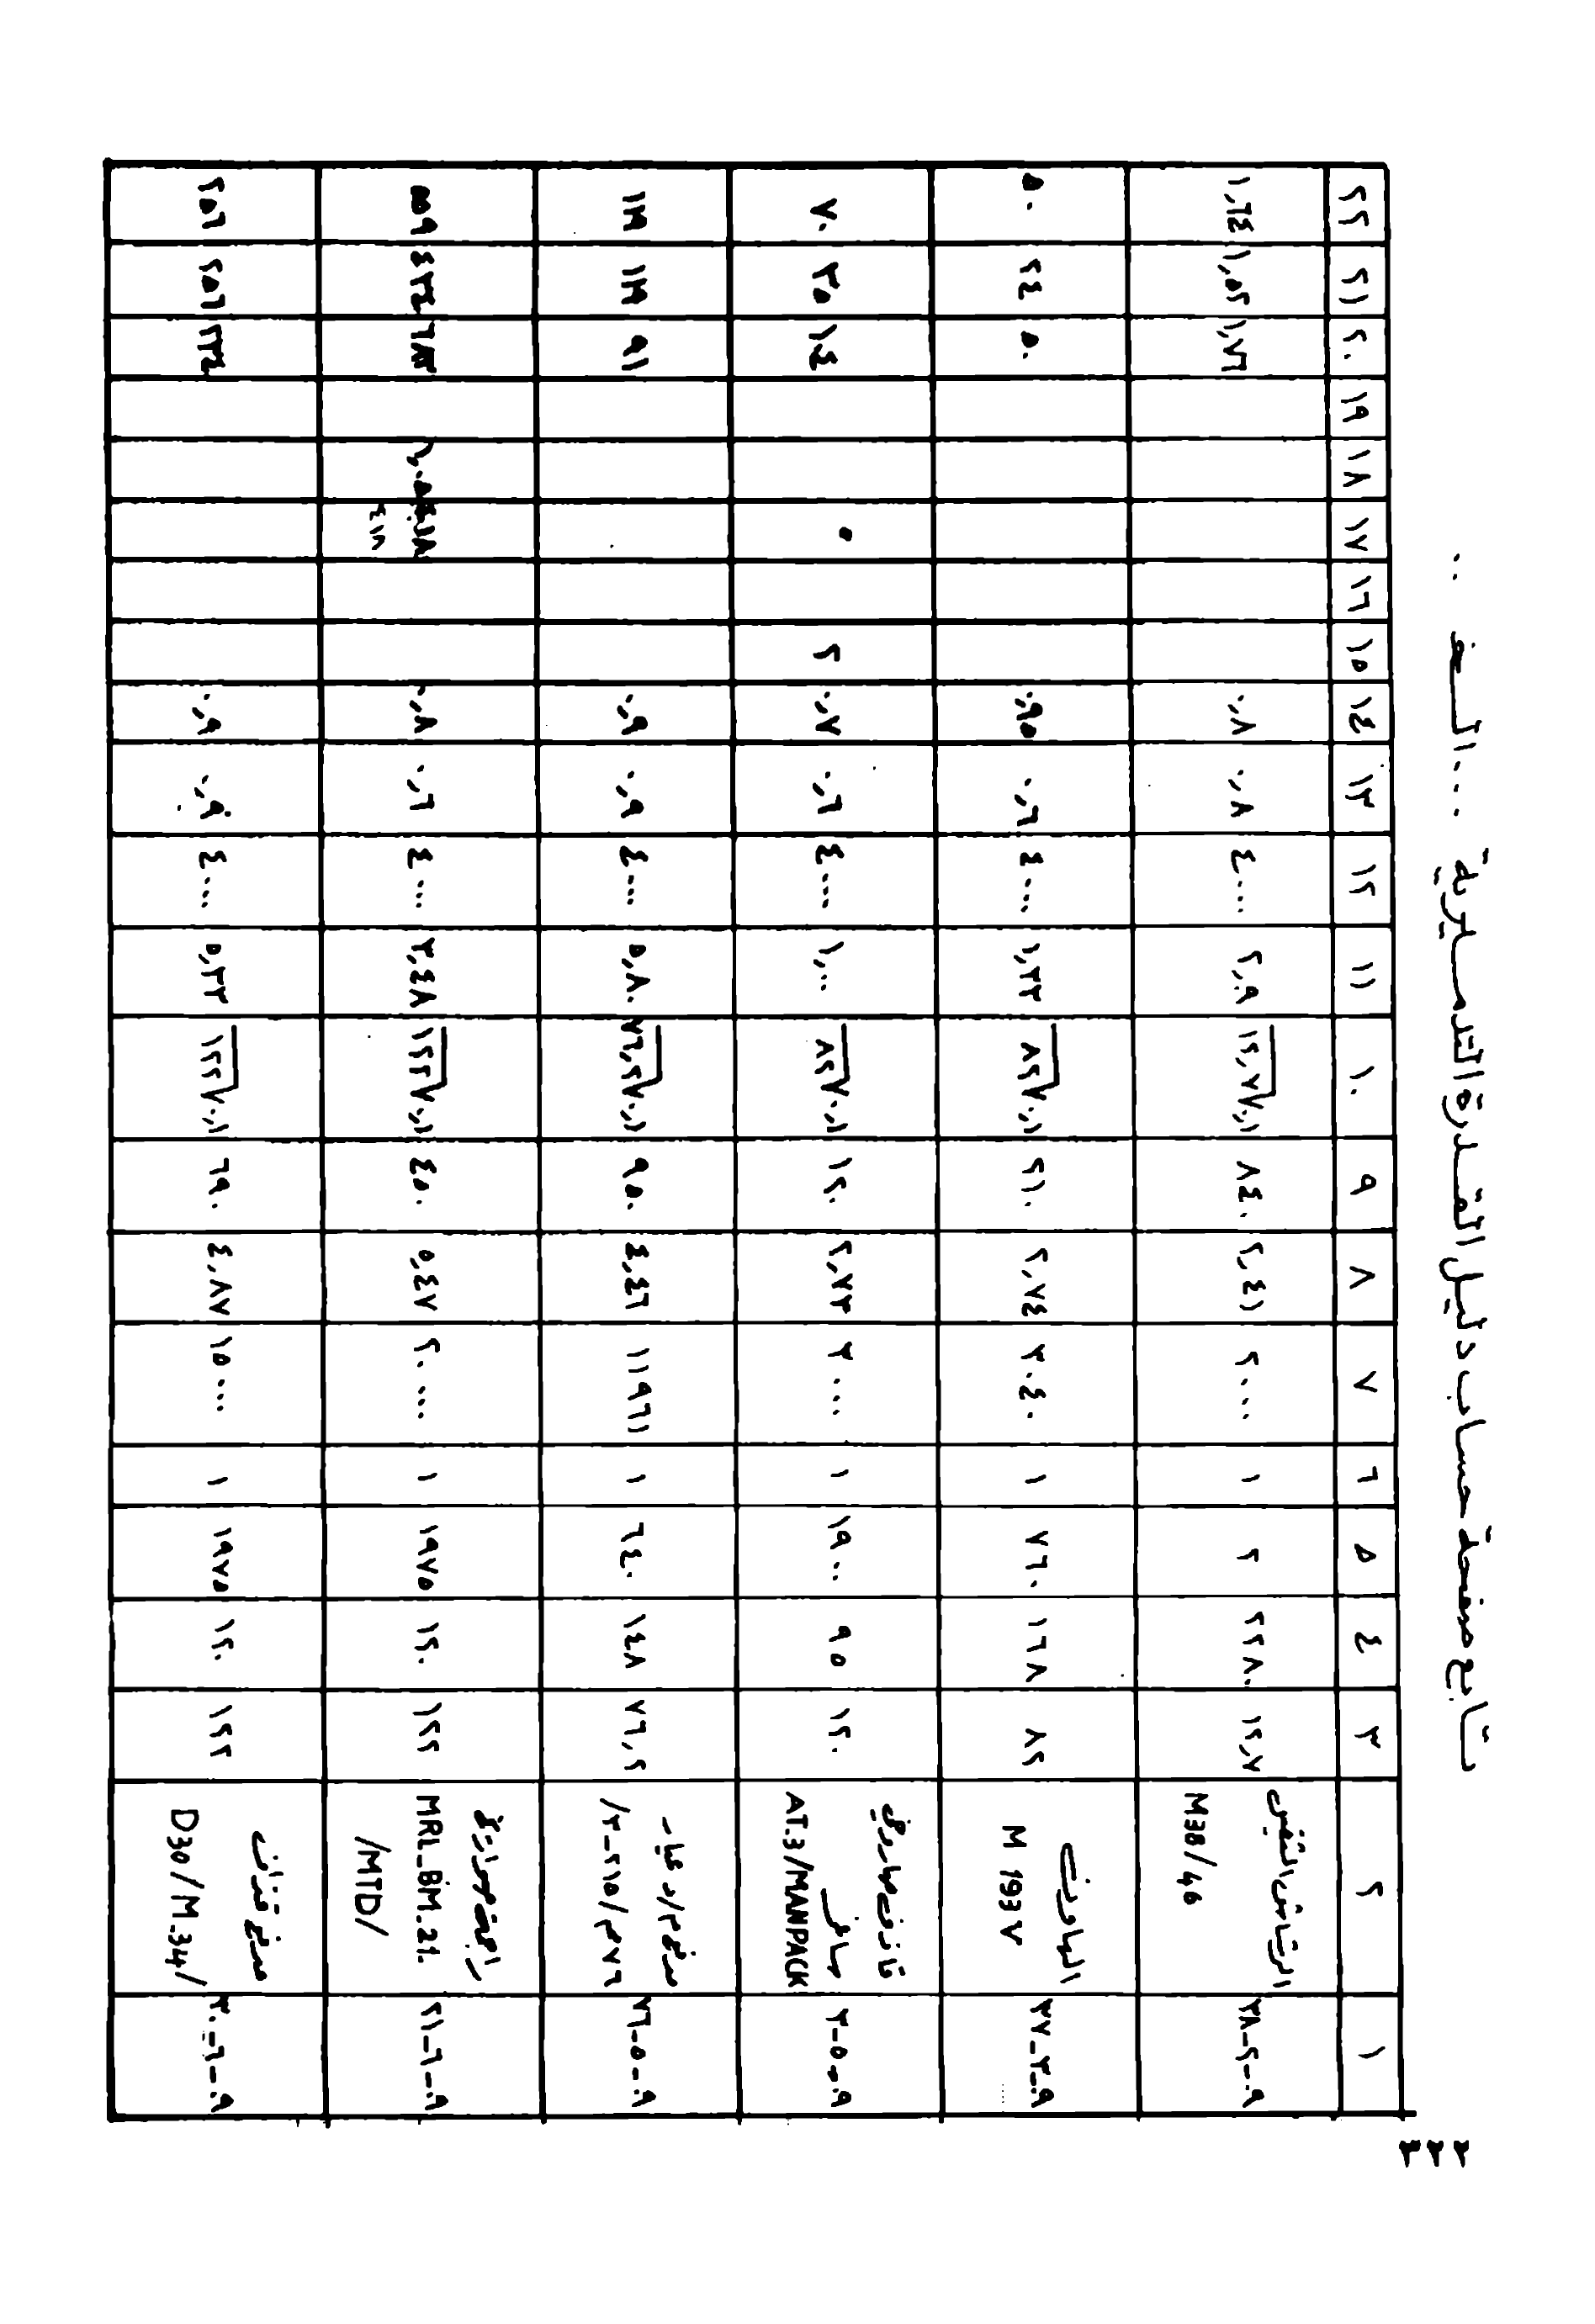 تابع صفحة حساب دليل القدرة التدميرية ...الخ ..
١ ٢ ٣ ٤ ٥ ٦ ٧ ٨ ٩ ١٠ ١١ ١٢ ١٣ ١٤ ١٥ ١٦ ١٧ ١٨ ١٩ ٢٠ ٢١ ٢٢
٣٨-٢-٠٩ الرشاش الثقيل M38/46 ١٢,٧ ٢٢٨٠ ٢ ١ ٢٠٠٠ ٢,٤١ ٨٤٠ ٠,١√١٢,٧ ٢,٩ ٤٠٠٠ ٠,٨ ٠,٨ ١,٧٦ ١,٥٢ ١,٦٤
٣٧-٣-٠٩ الهاون M 1937 ٨٢ ١٦٨ ٧٦٠ ١ ٣٠٤٠ ٢,٧٤ ٢١٠ ٠,١√٨٢ ١,٣٢ ٤٠٠٠ ٠,٦ ٠,٩٥ ٥٠ ٢٤ ٥٠
٣-٥-٠٩ قاذف صاروخي AT.3/MANPACK ١٢٠ ٩٥ ١٩٠٠ ١ ٣٠٠٠ ٢,٧٣ ١٢٠ ٠,١√٨٢ ١,٠٠ ٤٠٠٠ ٠,٦ ٠,٧ ٢ ٥ ١٤ ٣٥ ٧٠
٧٦-٥-٠٩ مدفع م/د عيار ٧٦م/٢١٥-٣/ ٧٦,٢ ١٤٨ ٦٤٠ ١ ١١٩٦١ ٤,٤٦ ٩٥٠ ٠,١√٧٦,٢ ٥,٨٠ ٤٠٠٠ ٠,٩ ٠,٩ ٩١
٢١-٦-٠٩ راجمة صواريخ MRL_BM.21. /MTD/ ١٢٢ ١٢٠ ١٩٧٥ ١ ٢٠٠٠٠ ٥,٤٧ ٤٥٠ ٠,١√١٢٢ ٣,٤٨ ٤٠٠٠ ٠,٦ ٠,٨ ٤٣٤ ٥٥٩
٣٠-٦-٠٩ مدفع قذاف D30/M.34/ ١٢٢ ١٢٠ ١٩٧٥ ١ ١٥٠٠٠ ٤,٨٧ ٦٩٠ ٠,١√١٢٢ ٥,٣٣ ٤٠٠٠ ٠,٩ ٠,٩ ٢٥٦ ٢٥٦
٣٢٢